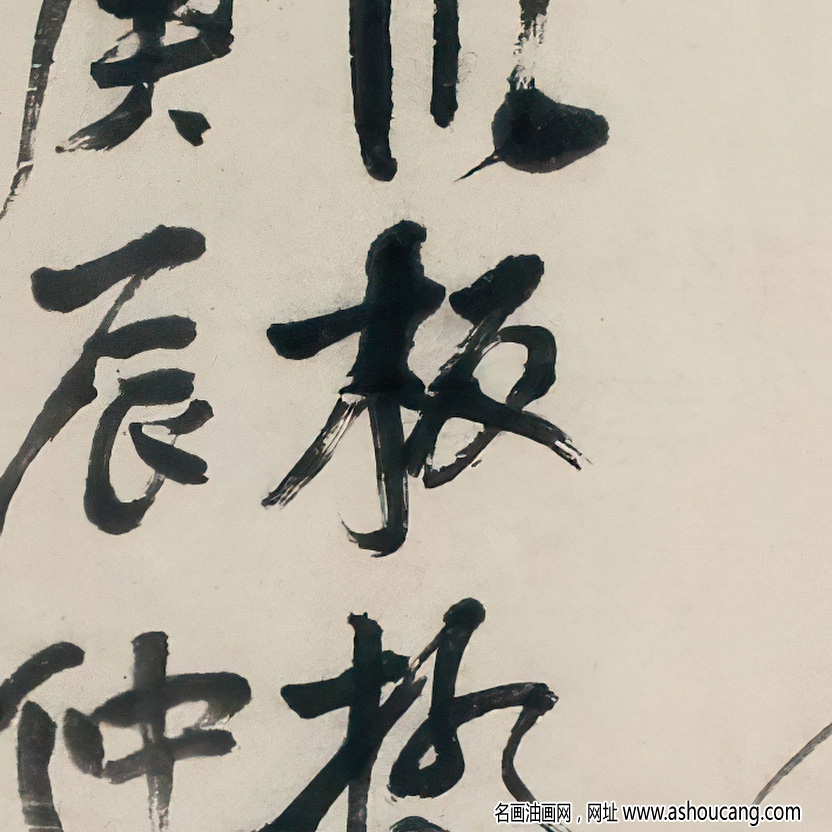 板桥
庚辰仲
名画油画网，网址 www.ashoucang.com